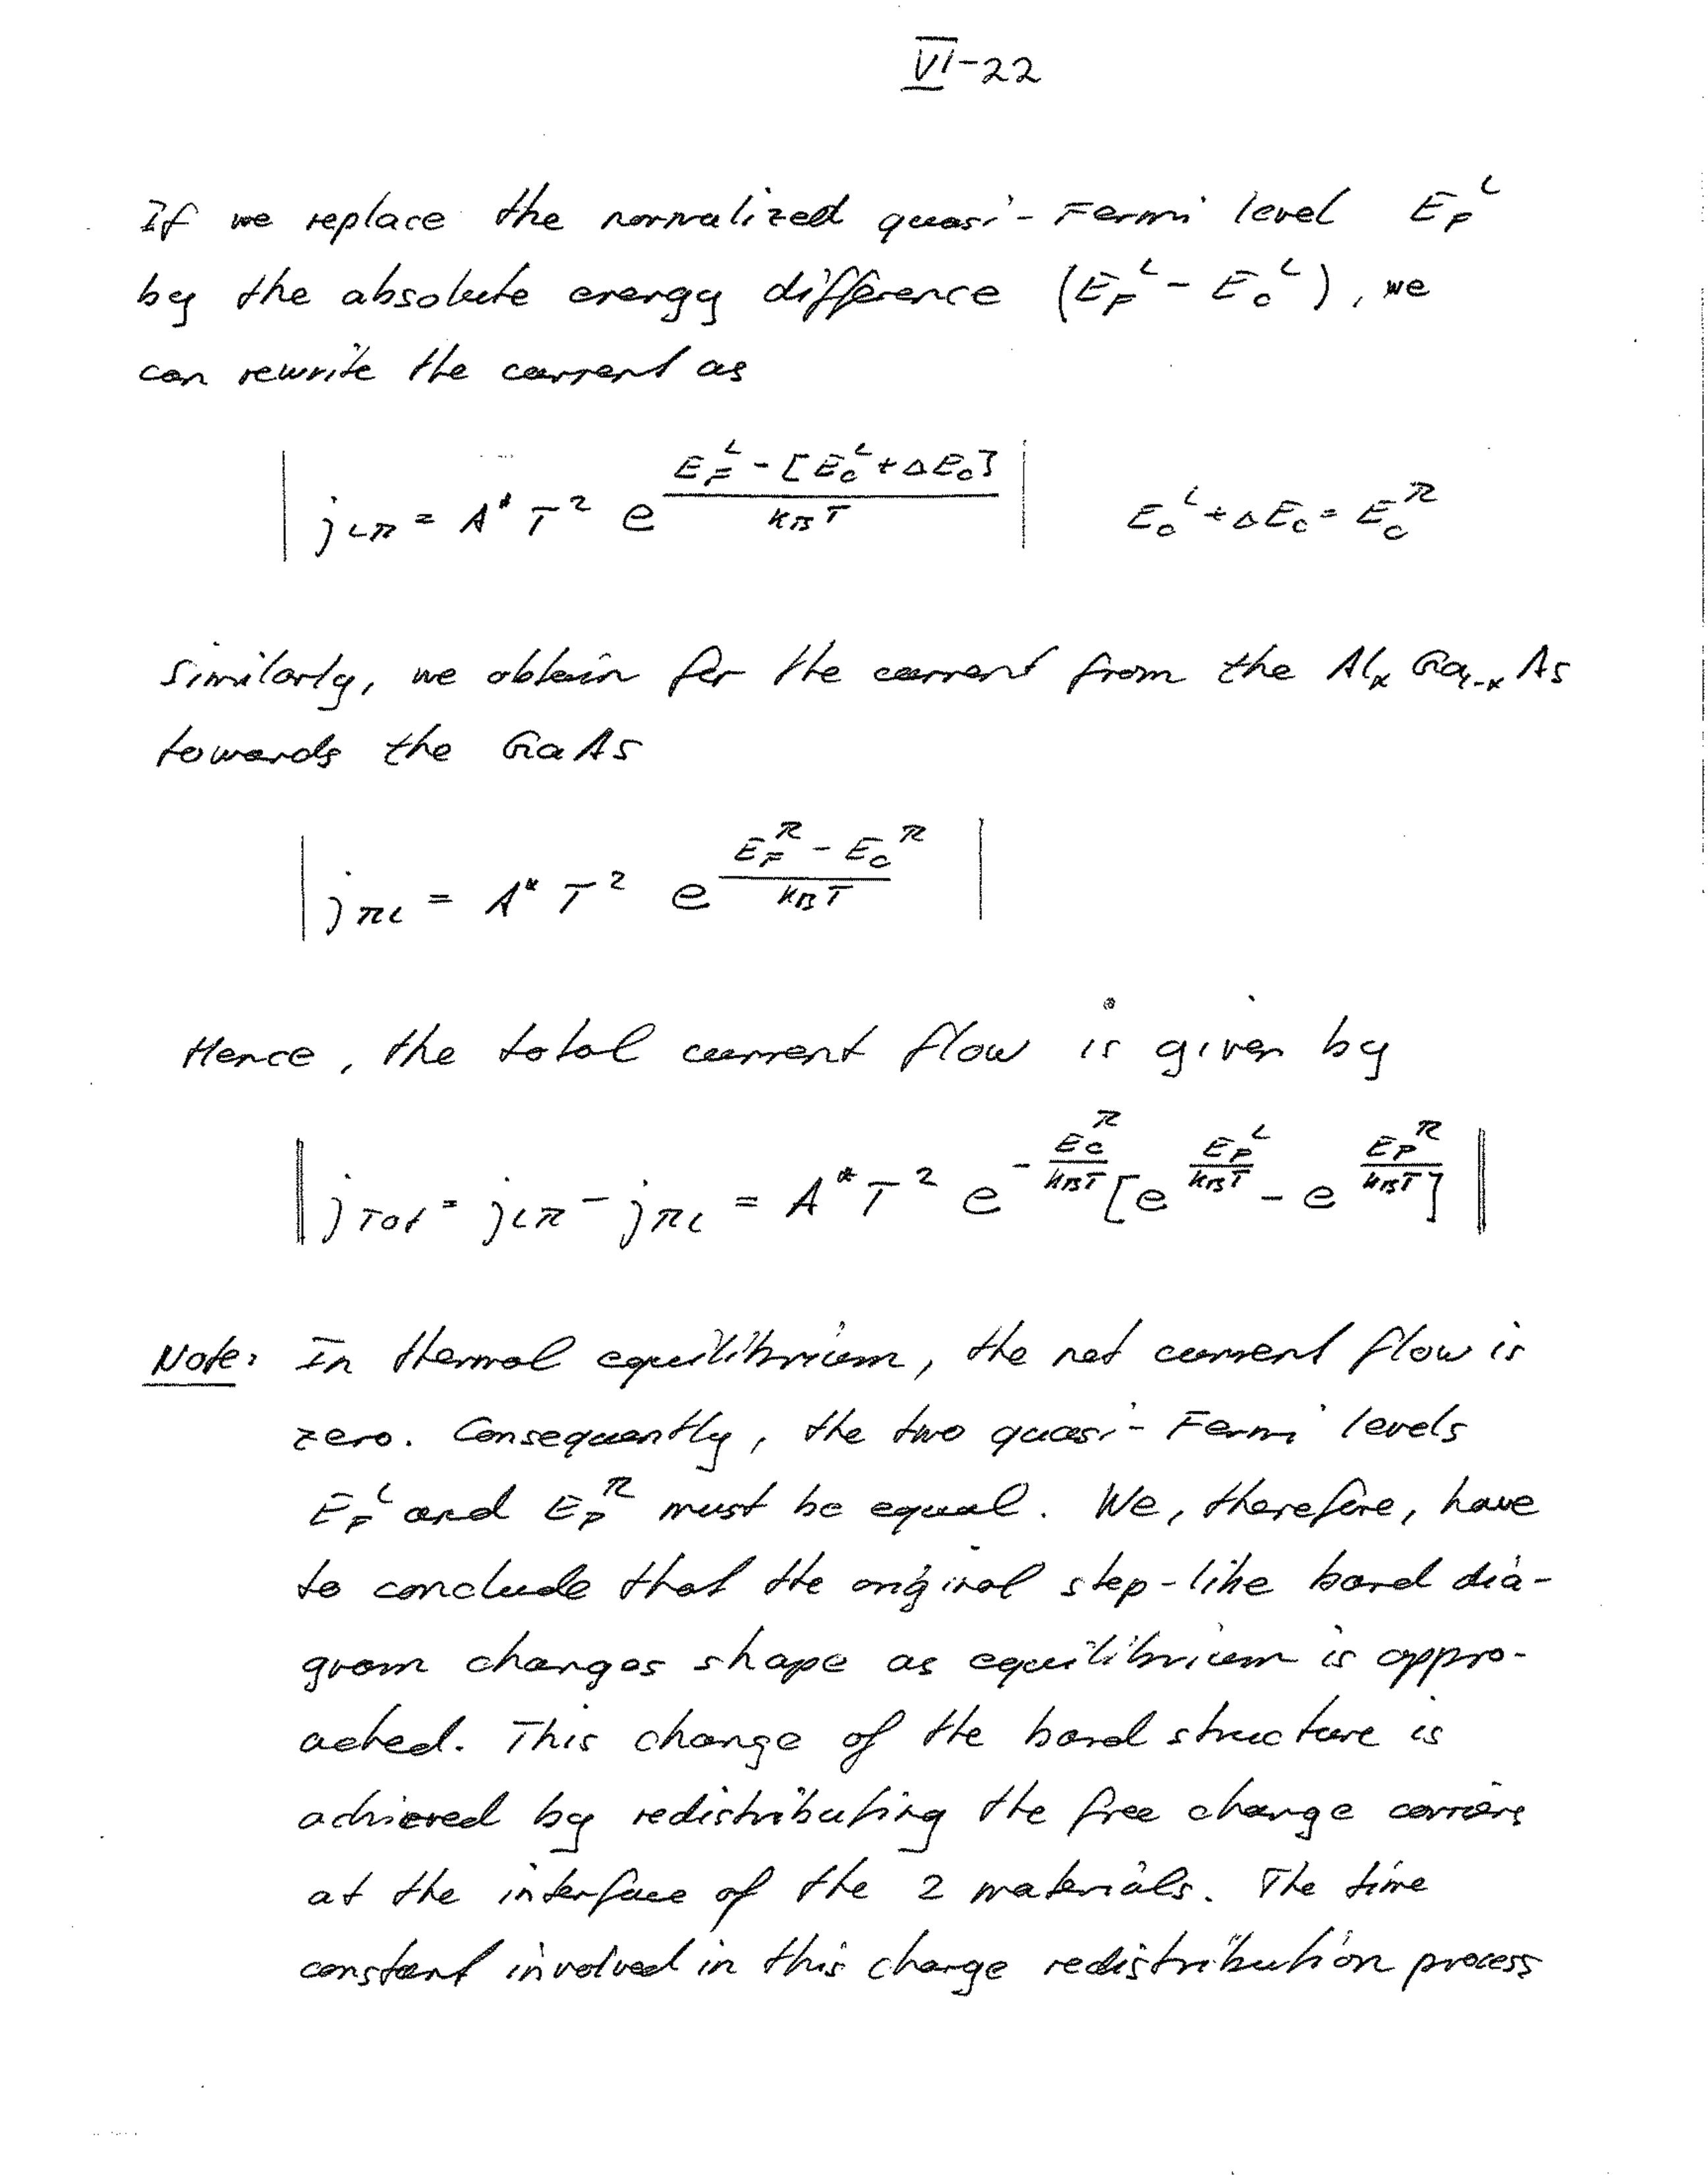 VI-22
If we replace the normalized quasi-Fermi level E_F^L
by the absolute energy difference (E_F^L - E_C^L), we
can rewrite the current as
| j_LR = A* T² e^{(E_F^L - [E_C^L + ΔE_C]) / k_B T} |   E_C^L + ΔE_C = E_C^R
Similarly, we obtain for the current from the Al_x Ga_{1-x} As
towards the GaAs
| j_RL = A* T² e^{(E_F^R - E_C^R) / k_B T} |
Hence, the total current flow is given by
|| j_Tot = j_LR - j_RL = A* T² e^{-E_C^R / k_B T} [e^{E_F^L / k_B T} - e^{E_F^R / k_B T}] ||
Note: In thermal equilibrium, the net current flow is
zero. Consequently, the two quasi-Fermi levels
E_F^L and E_F^R must be equal. We, therefore, have
to conclude that the original step-like band dia-
gram changes shape as equilibrium is appro-
ached. This change of the band structure is
achieved by redistributing the free charge carriers
at the interface of the 2 materials. The time
constant involved in this charge redistribution process